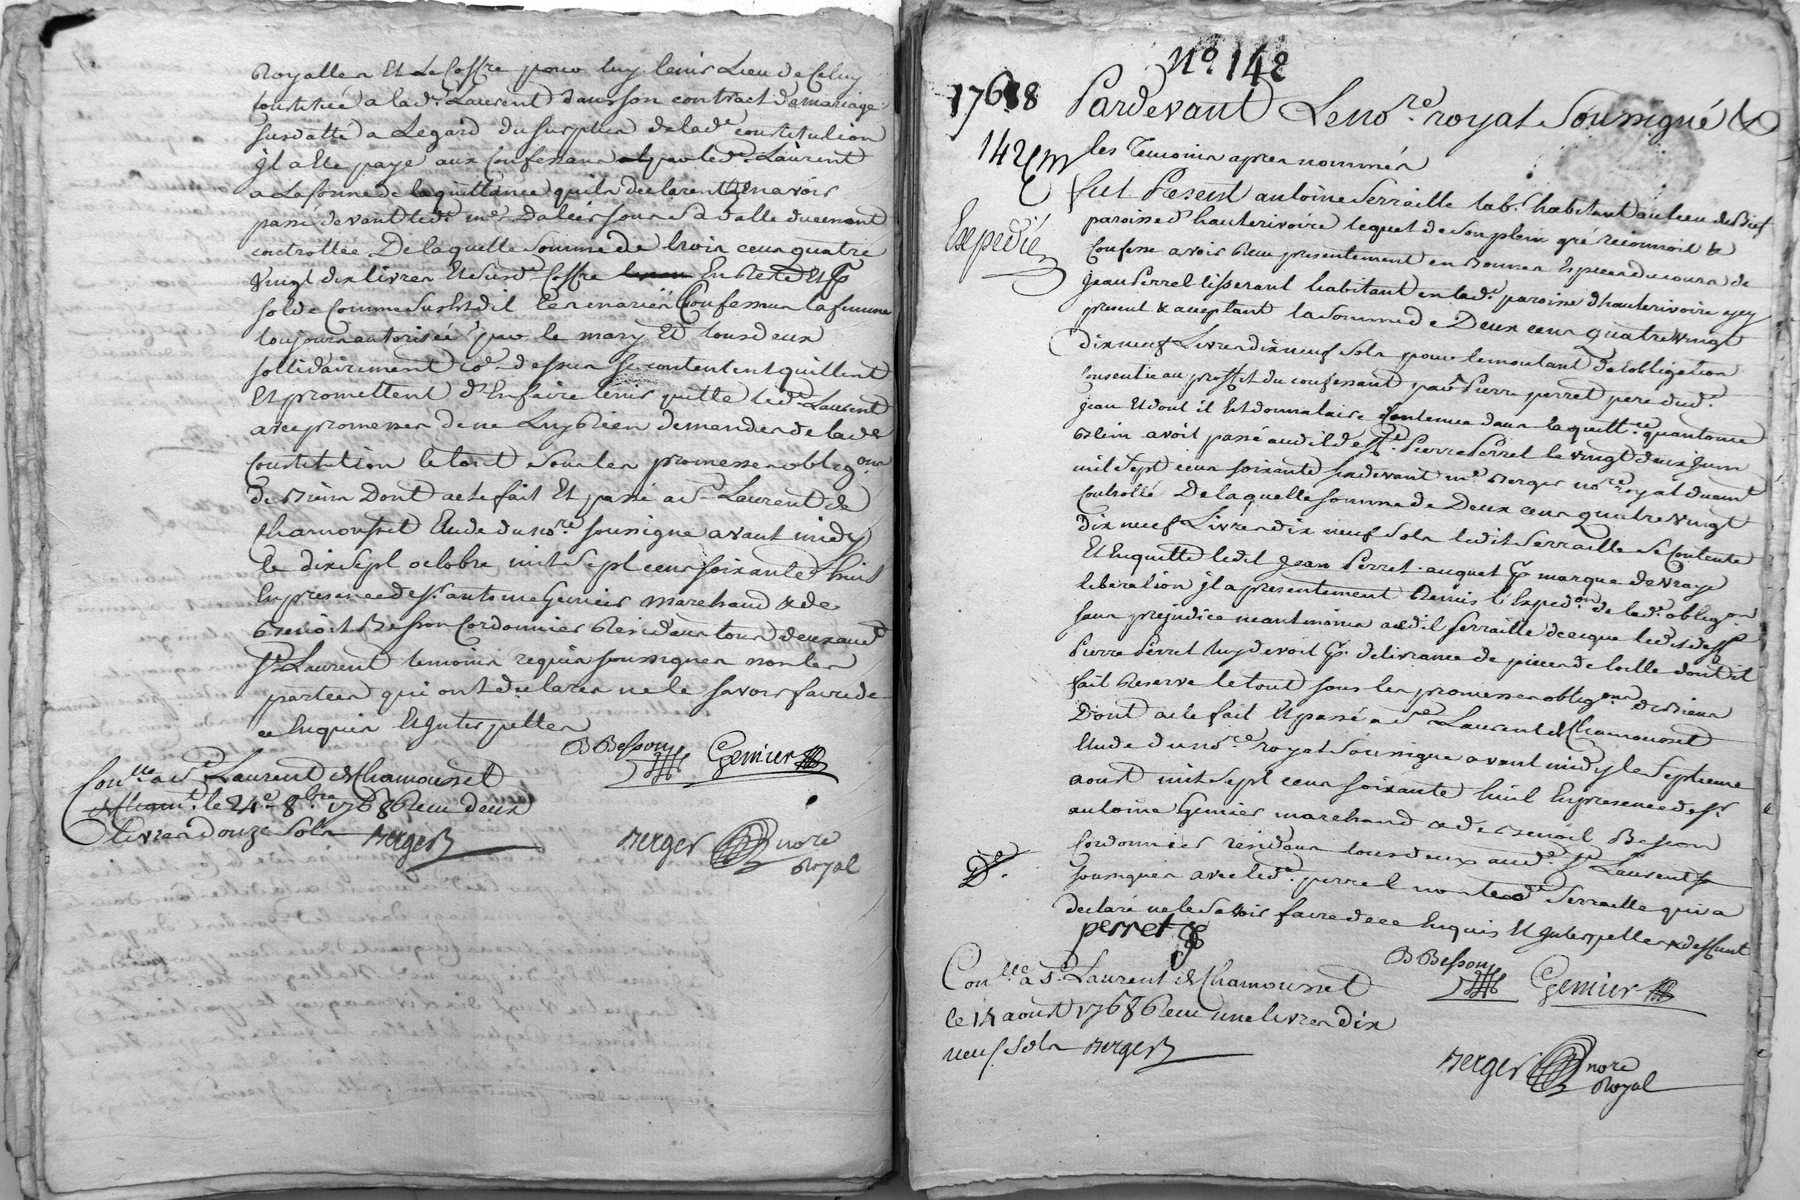 Royalles Et Le Coffre pour luy tenir Lieu de Celuy
constitué a lad.e Laurent dans son contract de mariage
susdatté a Legard du surplus de lad.e constitution
jl a ete payé aux Confessans par led. Laurent
a La forme de la quittance quils declarent En avoir
passé devant led.t m.e Dalier sous sa datte duement
controllée De laquelle somme de trois cens quatre
vingt dix livres Et susd.t Coffre En Reste Et p.r
solde Comme susest dit Les mariés Confessans la femme
toujours autorisée par le mary Et tous deux
sollidairement Co.e dessus se contentent quittent
Et promettent d'En faire tenir quitte led.t Laurent
avec promesses de ne Luy Rien demander de lad.e
Constitution le tout sous les promesses oblig.ons
de Biens Dont acte fait Et passé a S.t Laurent de
Chamousset Etude du no.re soussigné avant midy
le dix sept octobre mil sept cens soixante huit
En presence de s.r antoine Gemier marchand & de
Benoit Besson Cordonnier Residans tous deux aud.t
S.t Laurent temoins requis soussignes non les
parties qui ont declarés ne le savoir faire de
ce Enquis Et Interpellés
B Besson Gemier
Con.lle a S.t Laurent de Chamousset
le 24.e 8.bre 1768 Reçu deux
Livres douze sols Berger
Berger nore
Royal
N.o 142
1768 Pardevant Le no.re royal Soussigné &
142
les Temoins apres nommés
fut Present antoine Serraille lab.r habitant au lieu de
Expedié
paroisse d'hauterivoire lequel de son plein gré reconnoit &
Confesse avoir Reçu presentement en Bonnes Especes du cours de
Jean Perret tisserant habitant en lad.e paroisse d'hauterivoire icy
present & acceptant la somme de Deux cens quatre vingt
Dix neuf Livres dix neuf sols pour le montant de l'obligation
Consentie au proffit du confessant par Pierre perret pere dud.t
Jean Et dont il Est donnataire Contenue dans la quitt.ce quantoine
avoit passé audit def.t Pierre Perret le vingt deux juin
mil sept cens soixante six devant m.e Berger no.re royal duement
Controllé De laquelle somme de Deux cens quatre vingt
Dix neuf Livres dix neuf sols ledit Serraille se Contente
Et Enquitte ledit Jean Perret auquel p.r marque de vraye
liberation Jl a presentement Remis l'Exped.on de lad.e oblig.on
sans prejudice neantmoins audit Serraille de ce que ledit def.t
Pierre Perret luy devoit p.r delivrance de pieces de toille dont il
fait Reserve le tout sous les promesses oblig.ons de Biens
Dont acte fait Et passé a S.t Laurent de Chamousset
Etude du no.re royal Soussigné avant midy le septieme
aoust mil sept cens soixante huit En presence de s.r
antoine Gemier marchand & de Benoit Besson
Cordonnier residans tous deux aud.t S.t Laurent
soussignes avec led.t perret non led.t Serraille qui a
declaré ne le savoir faire de ce Enquis Et Interpellé
perret
B Besson Gemier
Con.lle a S.t Laurent de Chamousset
le 14 aoust 1768 Reçu une livre dix
neuf sols Berger
Berger nore
Royal